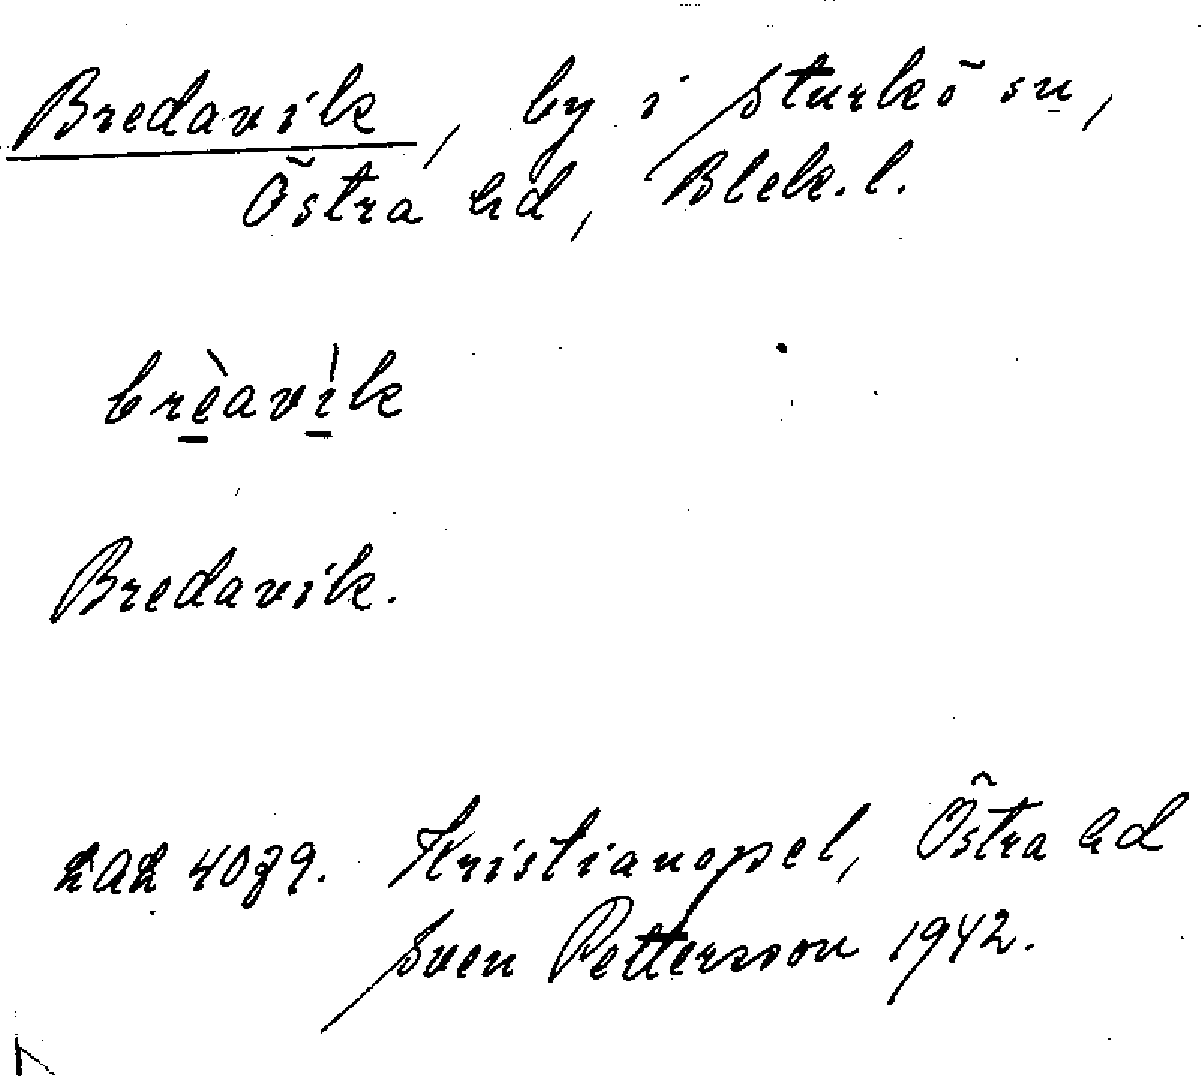 Bredavik, by i Sturkö sn,
Östra hd, Blek. l.
brèavìk
Bredavik.
4079. Kristianopel, Östra hd
Sven Pettersson 1942.